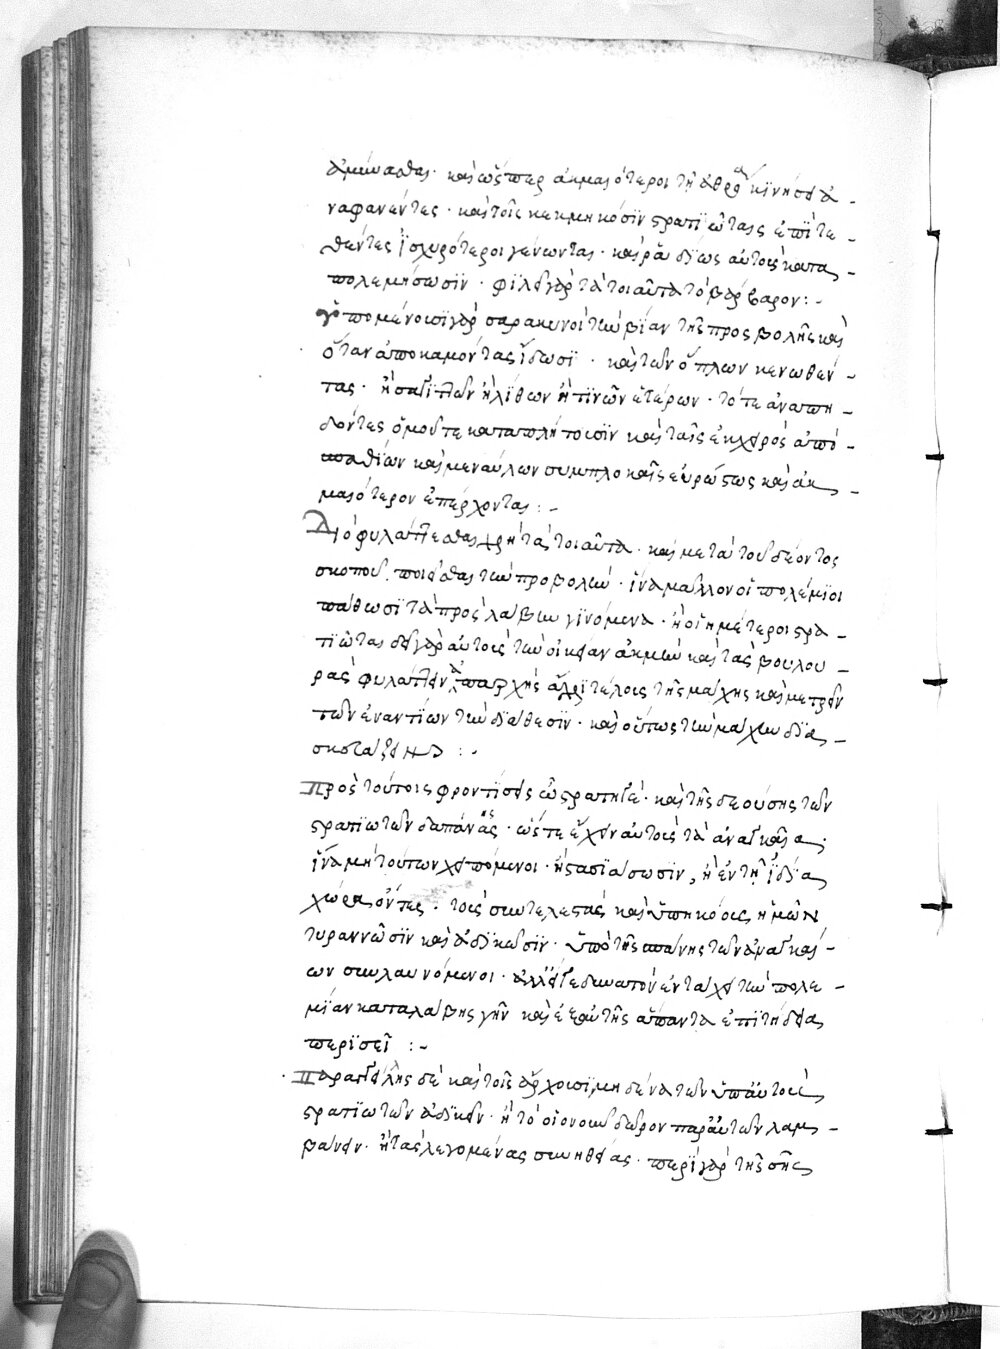 ἀμύνασθαι· καὶ ὥσπερ ἀκμαιότεροι τῇ ἀθρόᾳ κϊνήσει ἀ-
ναφανέντες· καὶ τοῖς κεκμηκόσϊν στρατϊώταις ἐπϊτε-
θέντες ϊσχυρότεροι γένωνται· καὶ ῥᾳδϊως αὐτοὺς κατα-
πολεμήσωσϊν· φϊλεῖ γὰρ τὰ τοιαῦτα τὸ βάρβαρον:-
ὑπομένουσϊ γὰρ σαρακηνοὶ τὴν βίαν τῆς προσβολῆς καὶ
ὅταν ἀποκαμόντας ἴδωσϊ· καὶ τῶν ὅπλων κενωθέν-
τας· ἢ σαγϊττῶν ἢ λίθων ἢ τϊνῶν ἑτέρων· τότε ἀναπη-
δόντες ὁμοῦ τε καταπλήττουσϊν καὶ ταῖς ἐκ χειρὸς ἀπὸ
σπαθϊων καὶ μεναύλων συμπλοκαῖς εὐρώστως καὶ ἀκ-
μαιότερον ἐπέρχονται:-
Διὸ φυλάττεσθαι χρὴ τὰ τοιαῦτα· καὶ μετὰ τοῦ δέοντος
σκοποῦ ποιεῖσθαι τὴν προβολὴν· ἵνα μᾶλλον οἱ πολέμϊοι
πάθωσϊ τὰ προσλαβὴν γϊνόμενα· ἢ οἱ ἡμέτεροι στρα-
τϊῶται δεῖ γὰρ αὐτοὺς τὴν οἰκείαν ἀκμὴν καὶ τὰς βουλου-
ρὰς φυλάττειν ἀπαρχῆς ἄχρϊ τέλους τῆς μάχης καὶ μετρεῖν
τῶν ἐναντϊων τὴν διάθεσϊν· καὶ οὕτως τὴν μάχην δϊα-
σκευάζειν:-
Πρὸς τούτοις φροντϊσεις ὦ στρατηγὲ· καὶ τῆς δεούσης τῶν
στρατϊωτῶν δαπάνης· ὥστε ἔχειν αὐτοὺς τὰ ἀναγκαῖα·
ἵνα μὴ τούτων λειπόμενοι· ἢ στασϊάσωσϊν, ἢ ἐν τῇ ἰδϊᾳ
χώρᾳ ὄντες· τοὺς συντελεστὰς καὶ ὑπηκόους ἡμῶν
τυραννῶσϊν καὶ ἀδϊκῶσϊν· ὑπὸ τῆς σπάνης τῶν ἀναγκαί-
ων συνελαυνόμενοι· ἀλλ' εἴγε δυνατὸν ἐν τάχει τὴν πολε-
μϊαν καταλάβῃς γῆν καὶ ἐξ αὐτῆς ἅπαντα ἐπϊτήδεια
περϊσεῖ:-
Παραγγείλῃς δὲ καὶ τοῖς ἄρχουσϊ, μηδένα τῶν ὑπ' αὐτοὺς
στρατϊωτῶν ἀδϊκεῖν· ἢ τὸ οἱονοῦν δῶρον παρ' αὐτῶν λαμ-
βάνειν· ἢ τὰς λεγομένας συνηθείας· περϊ γὰρ τῆς σῆς